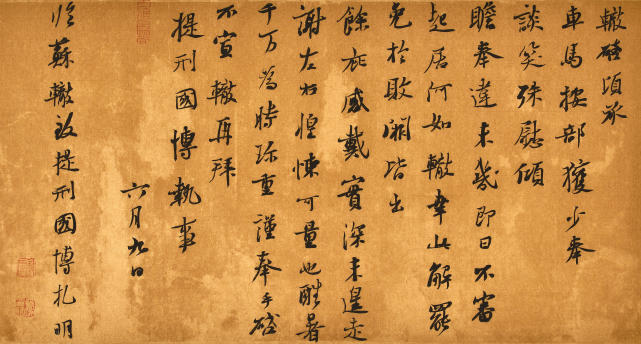 轍啓頃承
車馬按部獲少奉
談笑殊慰傾
瞻奉違未幾即日不審
起居何如轍幸此解罷
免於敗闕皆出
餘庇感戴實深未遑走
謝左右惶悚可量也酷暑
千万為時珍重謹奉手啓
不宣轍再拜
提刑國博執事
六月九日
临蘇轍致提刑國博札明